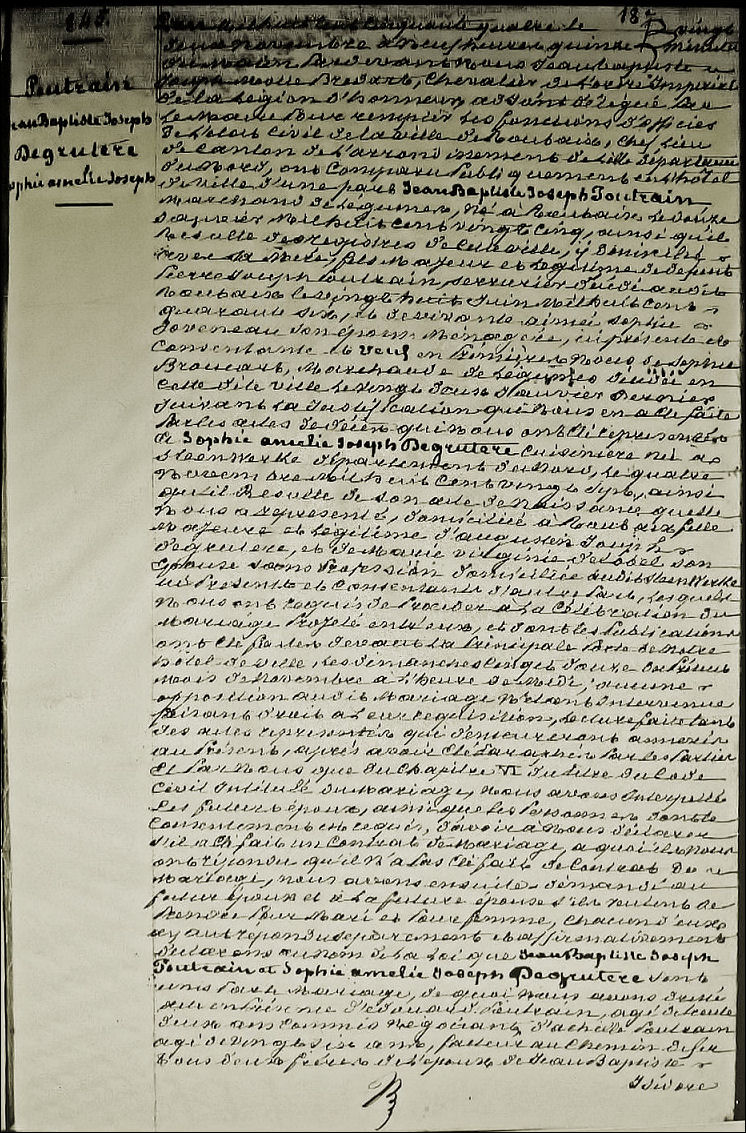 145.
Poutrain
Jean Baptiste Joseph
Degrutere
Sophie amelie Joseph
L'an mil huit cent cinquante quatre le vingt
deux Novembre à Neuf heures quinze Minutes
du Matin Pardevant Nous Jean Baptiste
Joseph Brédart, Chevalier de l'ordre Impérial
de la Legion d'honneur, adjoint délégué Par
le Maire Pour remplir les fonctions d'officier
de l'état Civil de la ville de Roubaix, Chef lieu
de Canton de l'arrondissement de Lille Département
du Nord, ont Comparu Publiquement en l'hôtel
de ville d'une part Jean Baptiste Joseph Poutrain
Marchand de légumes, Né à Roubaix le douze
Janvier Mil huit cent vingt cinq, ainsi qu'il
Résulte des registres de cette ville, y domicilié
avec sa Mère, fils Majeur et légitime de défunt
Pierre Joseph Poutrain, serrurier décédé audit
Roubaix le vingt huit Juin Mil huit cent
quarante six, et de vivante aimée Sophie
Joveneau son épouse Ménagère, ici présente et
Consentante et Veuf en Premières Noces de Sophie
Broucart, Marchande de légumes décédée en
cette dite ville le vingt deux Janvier Dernier
suivant la Justification qui Nous en a été faite
Par les actes de décès qui Nous ont été représentés
Et Sophie amelie Joseph Degrutere Cuisinière née à
Steenwerke département du Nord, le quatre
Novembre Mil huit Cent vingt sept, ainsi
qu'il Résulte de son acte de Naissance quelle
Nous a représenté, domiciliée à Roubaix fille
Majeure et légitime d'augustin Joseph
Degrutere, et de Marie virginie Delobel son
épouse sans Profession domiciliée audit Steenwerke
ici Présents et Consentants d'autre Part, lesquels
Nous ont requis de Procéder à la Célébration du
Mariage Projeté entr'eux, et dont les Publications
ont été faites devant la Principale Porte de Notre
hôtel de ville, les dimanches cinq et douze du Présent
Mois de Novembre à l'heure de Midi, aucune
opposition audit Mariage N'étant Intervenue
faisant droit à leur réquisition, lecture faite tant
des actes représentés qui demeureront annexés
au Présent, après avoir été Paraphés Par les Parties
Et Par Nous que du Chapitre VI du titre du Code
Civil Intitulé du Mariage, Nous avons Interpellé
les futurs époux, ainsi que les Personnes dont le
Consentement est requis, d'avoir à Nous déclarer
s'il a été fait un Contrat de Mariage, à quoi ils Nous
ont répondu qu'il N'a Pas été fait de Contrat De
Mariage, nous avons ensuite demandé au
futur époux et à la future épouse s'ils veulent se
Prendre Pour Mari et Pour femme, Chacun d'eux
ayant répondu séparément et affirmativement
déclarons au Nom de la Loi que Jean Baptiste Joseph
Poutrain et Sophie amelie Joseph Degrutere sont
unis Par le Mariage, de quoi Nous avons dressé
acte en Présence d'Edouard Poutrain, agé de trente
deux ans Commis Négociant, d'achille Poutrain
agé de vingt six ans, facteur au Chemin de fer
tous deux frères de l'époux, de Jean Baptiste
Isidore